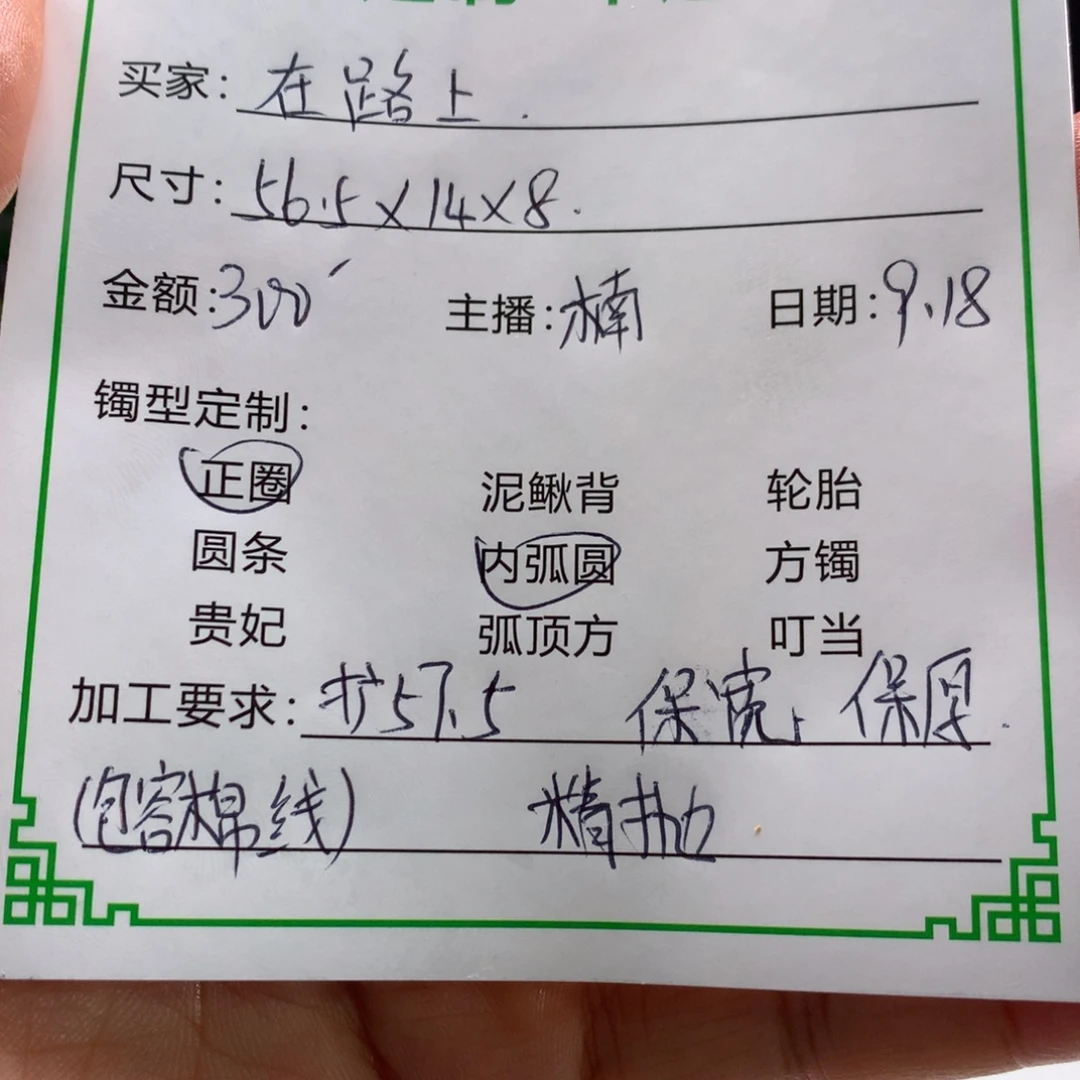 买家: 在路上.
尺寸: 56.5×14×8.
金额: 300 主播: 楠 日期: 9.18
镯型定制:
正圈 泥鳅背 轮胎
圆条 内弧圆 方镯
贵妃 弧顶方 叮当
加工要求: 扩57.5 保宽, 保厚.
(包容棉线) 精抛